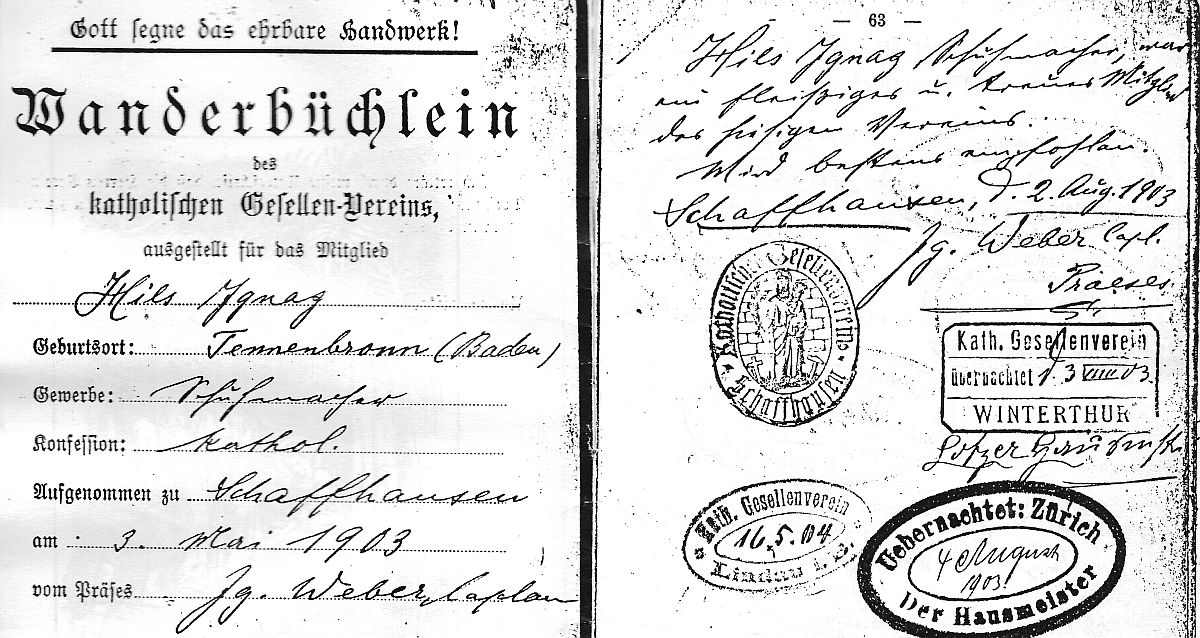 Gott segne das ehrbare Handwerk!
Wanderbüchlein
des
katholischen Gesellen-Vereins,
ausgestellt für das Mitglied
Hils Ignaz
Geburtsort: Tennenbronn (Baden)
Gewerbe: Schuhmacher
Konfession: kathol.
Aufgenommen zu Schaffhausen
am 3. Mai 1903
vom Präses Jg. Weber, Caplan
— 63 —
Hils Ignaz Schuhmacher, war
ein fleißiges u. treues Mitglied
des hiesigen Vereins.
Wird bestens empfohlen.
Schaffhausen, d. 2. Aug. 1903
Jg. Weber Capl.
Praeses.
Katholischer Gesellenverein
Schaffhausen
Kath. Gesellenverein
übernachtet 3 VIII 03.
WINTERTHUR
Kath. Gesellenverein
16.5.04
Lindau i. B.
Uebernachtet: Zürich
4 August
1903
Der Hausmeister